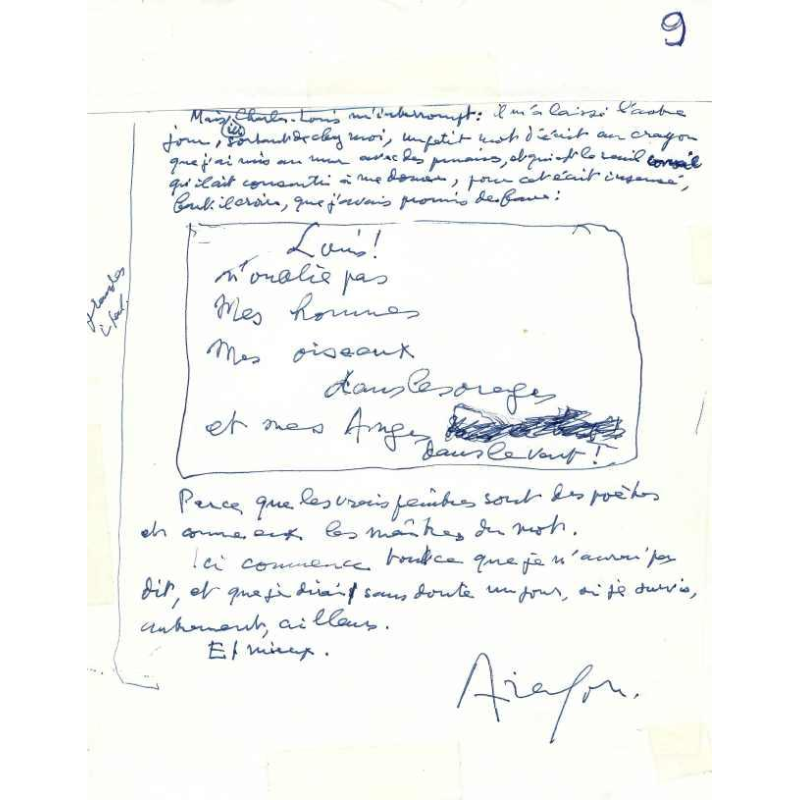 9
Mais Charles-Louis m'interrompt : il m'a laissé l'autre
jour, sortant de chez moi, un petit mot d'écrit au crayon
que j'ai mis au mur avec des punaises, et qui est le seul conseil
qu'il ait consenti à me donner, pour cet écrit insensé,
faut-il croire, que j'avais promis de faire :
Louis !
n'oublie pas
Mes hommes
Mes oiseaux
dans les orages
et mes Anges
dans le vent !
Parce que les vrais peintres sont des poètes
et comme eux les maîtres du mot.
Ici commence tout ce que je n'aurai pas
dit, et que je dirai sans doute un jour, si je survis,
autrement, ailleurs.
Et mieux.
Aragon.